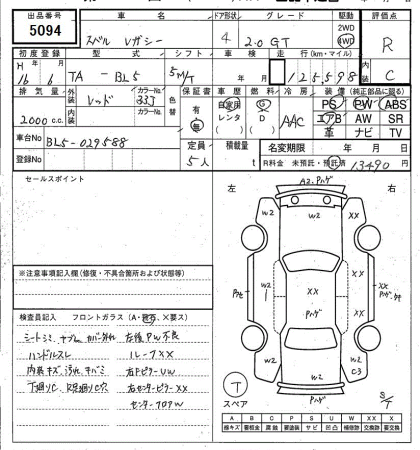 出品番号 車名 ドア形状 グレード 駆動 評価点
5094 スバル レガシー 4 2.0 GT 2WD 4WD R
初度登録 型式 シフト 車検 走行(km・マイル) 内装
H 16年 6月 TA - BL5 5M/T 年 月 125598 C
排気量 外装 カラーNo. 色替 保証書 車歴 燃料 冷房 装備(純正部品に限る)
2000 c.c. レッド 33J 有 無 自家用 レンタ G D AAC PS PW ABS
内装 カラーNo. エアB AW SR
革 ナビ TV
車台No BL5-029588 定員 積載量 名変期限 年 月 日
登録No 5人 t R料金 未預託・預託済 13490 円
セールスポイント
左 右
A2. Pハゲ
W2 W2 XX
W2 XX XX
Pハゲ
W2 W2 W2
C3
※注意事項記入欄(修復・不具合箇所および状態等)
検査員記入 フロントガラス(A・飛石・X要ス)
シートシミ 左後PW不良
ハンドルスレ ルーフXX
内装キズ、汚れ 右FピラーUW
下廻りC 右センターピラーXX
センターフロアW
T
スペア
S/T
A B C P S U W X XX
線キズ 要板金 腐蝕 要塗装 サビ 凹凸 補修跡 要交換 交換済